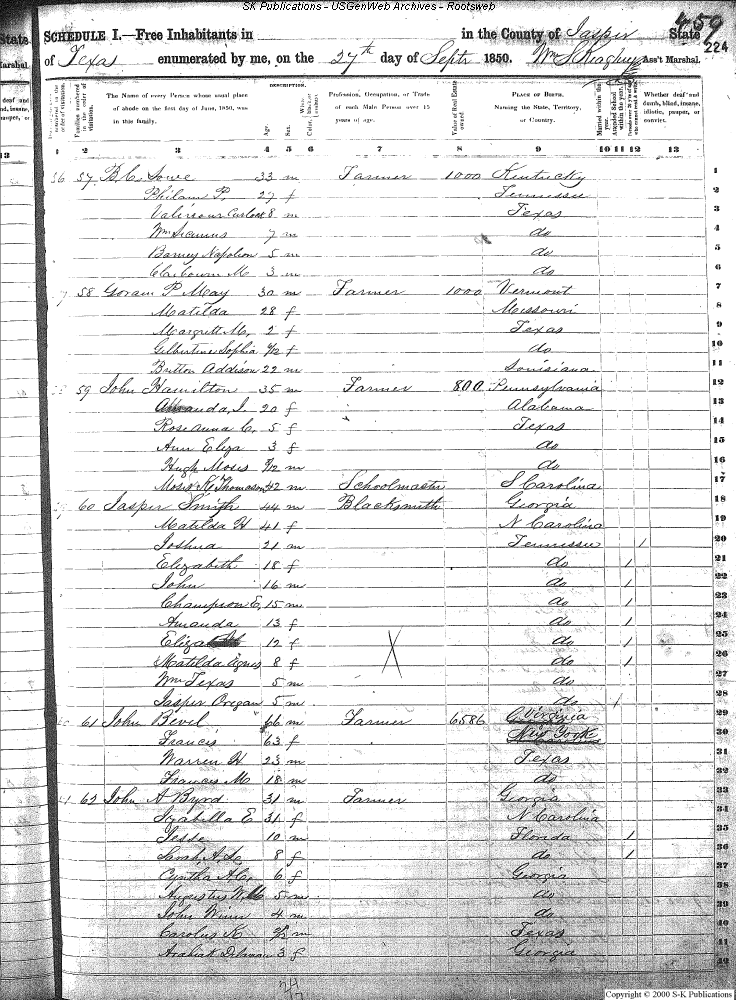 SK Publications - USGenWeb Archives - Rootsweb
459
224
SCHEDULE I.—Free Inhabitants in in the County of Jasper State
of Texas enumerated by me, on the 27th day of Septr 1850. Wm Ass't Marshal.
DESCRIPTION.
The Name of every Person whose usual place of abode on the first day of June, 1850, was in this family.
Age. Sex.
Profession, Occupation, or Trade of each Male Person over 15 years of age.
Value of Real Estate owned.
PLACE OF BIRTH. Naming the State, Territory, or Country.
Married within the year.
Attended School within the year.
Whether deaf and dumb, blind, insane, idiotic, pauper, or convict.
1 2 3 4 5 6 7 8 9 10 11 12 13
56 57 B.C. Lowe 33 m Farmer 1000 Kentucky 1
Philam P. 27 f Tennessee 2
8 m Texas 3
Wm 7 m do 4
Barney Napoleon 5 m do 5
Claibourn M 3 m do 6
58 Goram P. May 30 m Farmer 1000 Vermont 7
Matilda 28 f Missouri 8
Margrett M. 2 f Texas 9
Gilbertine Sophia /12 f do 10
Britton Addison 22 m Louisiana 11
59 John Hamilton 35 m Farmer 800 Pennsylvania 12
Amanda, J. 20 f Alabama 13
Roseanna C. 5 f Texas 14
Ann Eliza 3 f do 15
Hugh Moses /12 m do 16
Moses K. Thomason 42 m Schoolmaster S Carolina 17
60 Jasper Smith 44 m Blacksmith Georgia 18
Matilda H 41 f N Carolina 19
Joshua 21 m Tennessee 1 20
Elizabeth 18 f do 1 21
John 16 m do 1 22
Champson E. 15 m do 1 23
Amanda 13 f do 1 24
Eliza 12 f do 1 25
Matilda Agnes 8 f do 1 26
Wm Texas 5 m do 27
Jasper Oregan 5 m do 1 28
61 John Bevil 66 m Farmer 6586 Virginia 29
Francis 63 f New York 30
Warren H 23 m Texas 31
Frances M 18 m do 32
62 John A Byrd 31 m Farmer Georgia 33
Izabella E 31 f N Carolina 34
Jesse 10 m Florida 1 35
Sarah A. 8 f do 1 36
Cyntha A.C. 6 f Georgia 37
Augustus W. 5 m do 38
John Winn 4 m do 39
Carolus K /12 m Texas 40
3 f Georgia 41
42
Copyright © 2000 S-K Publications